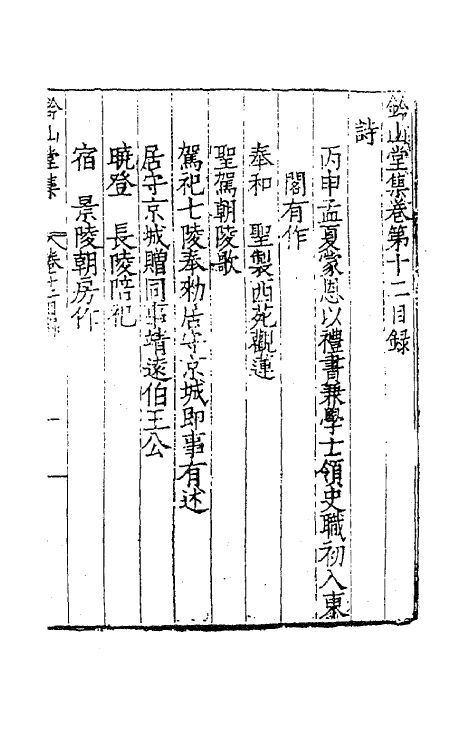 鈐山堂集卷第十二目録
詩
丙申孟夏蒙恩以禮書兼學士領史職初入東
閣有作
奉和 聖製西苑觀蓮
聖駕朝陵歌
駕祀七陵奉勑居守京城即事有述
居守京城贈同事靖遠伯王公
曉登 長陵陪祀
宿 景陵朝房作
鈐山堂集 卷十二目録 一